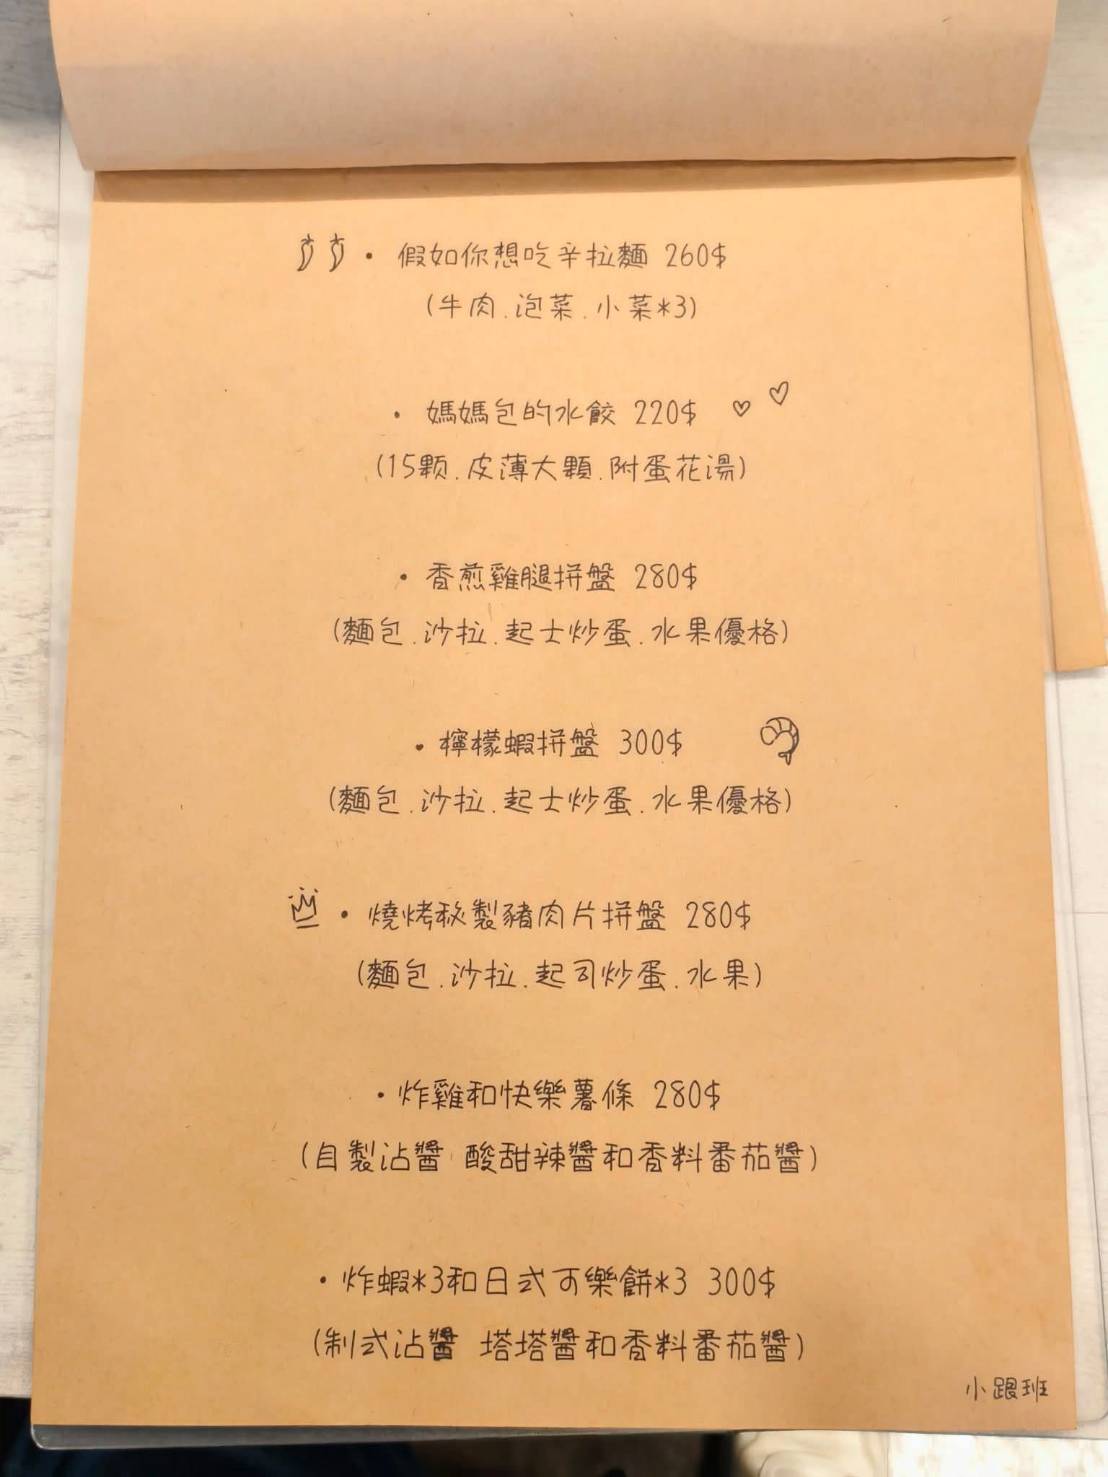 • 假如你想吃辛拉麵 260$
(牛肉.泡菜.小菜*3)
• 媽媽包的水餃 220$
(15顆.皮薄大顆.附蛋花湯)
• 香煎雞腿拼盤 280$
(麵包.沙拉.起士炒蛋.水果優格)
• 檸檬蝦拼盤 300$
(麵包.沙拉.起士炒蛋.水果優格)
• 燒烤秘製豬肉片拼盤 280$
(麵包.沙拉.起司炒蛋.水果)
• 炸雞和快樂薯條 280$
(自製沾醬 酸甜辣醬和香料番茄醬)
• 炸蝦*3和日式可樂餅*3 300$
(制式沾醬 塔塔醬和香料番茄醬)
小跟班